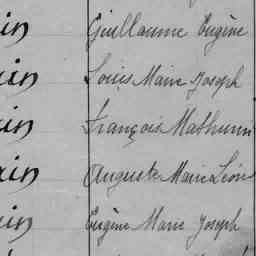 in Guillaume Eugène
in Louis Marie Joseph
in François Mathurin
in Auguste Marie Léon
in Eugène Marie Joseph